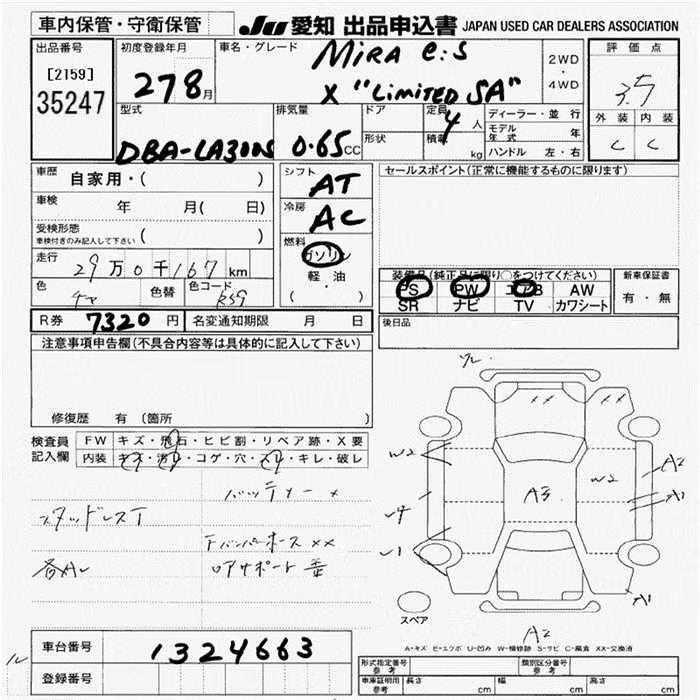 車内保管・守衛保管
JU 愛知 出品申込書 JAPAN USED CAR DEALERS ASSOCIATION
出品番号
[2159]
35247
初度登録年月
27 8月
車名・グレード
MIRA e:S
X "Limited SA"
2WD
・
4WD
評価点
3.5
外装 内装
C C
型式
DBA-LA300S
排気量
0.65 CC
ドア
形状
定員
4人
積載
kg
ディーラー・並行
モデル年式 年
ハンドル 左・右
車歴
自家用・( )
車検
年 月( 日)
受検形態
車検付きのみ記入して下さい ( )
走行
29万0千167km
色
チャ
色替
色コード
R59
シフト
AT
冷房
AC
燃料
ガソリン
軽・油
( ・ )
セールスポイント(正常に機能するものに限ります)
装備品(純正品に限り○をつけてください)
PS PW エアB AW
SR ナビ TV カワシート
新車保証書
有・無
R券 7320円
名変通知期限 月 日
後日品
注意事項申告欄(不具合内容等は具体的に記入して下さい)
修復歴 有(箇所
検査員記入欄
FW キズ・飛石・ヒビ割・リペア跡・X要
内装 キズ・汚レ・コゲ・穴・スレ・キレ・破レ
バッテリー ×
スタッドレスT
F バンパーホース ××
各AL
ロアサポート 歪
W2
A3
W2
A2
A1
A1
A2
スペア
A-キズ E-エクボ U-凹み W-補修跡 S-サビ C-腐食 XX-交換済
車台番号
1324663
登録番号
形式指定番号
参考
類別区分番号
参考
車庫証明用
参考
長さ cm 幅 cm 高さ cm